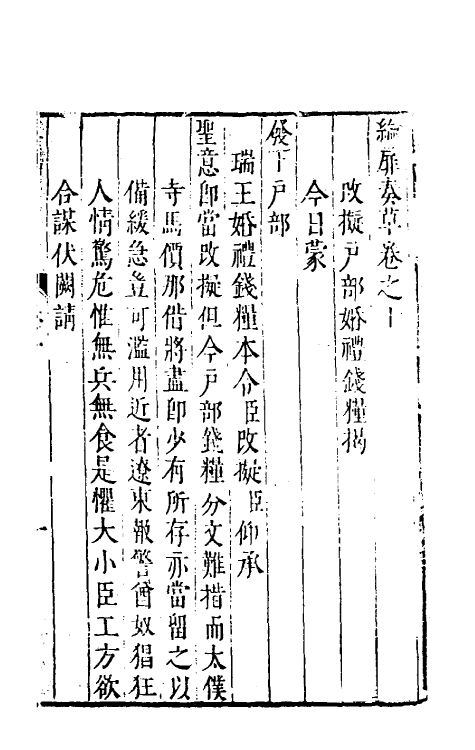 綸扉奏草卷之十
改擬戶部婚禮錢糧揭
今日蒙
發下戶部
瑞王婚禮錢糧本令臣改擬臣仰承
聖意卽當改擬但今戶部錢糧分文難措而太僕
寺馬價那借將盡卽少有所存亦當留之以
備緩急豈可濫用近者遼東報警酋奴猖狂
人情驚危惟無兵無食是懼大小臣工方欲
合謀伏闕請